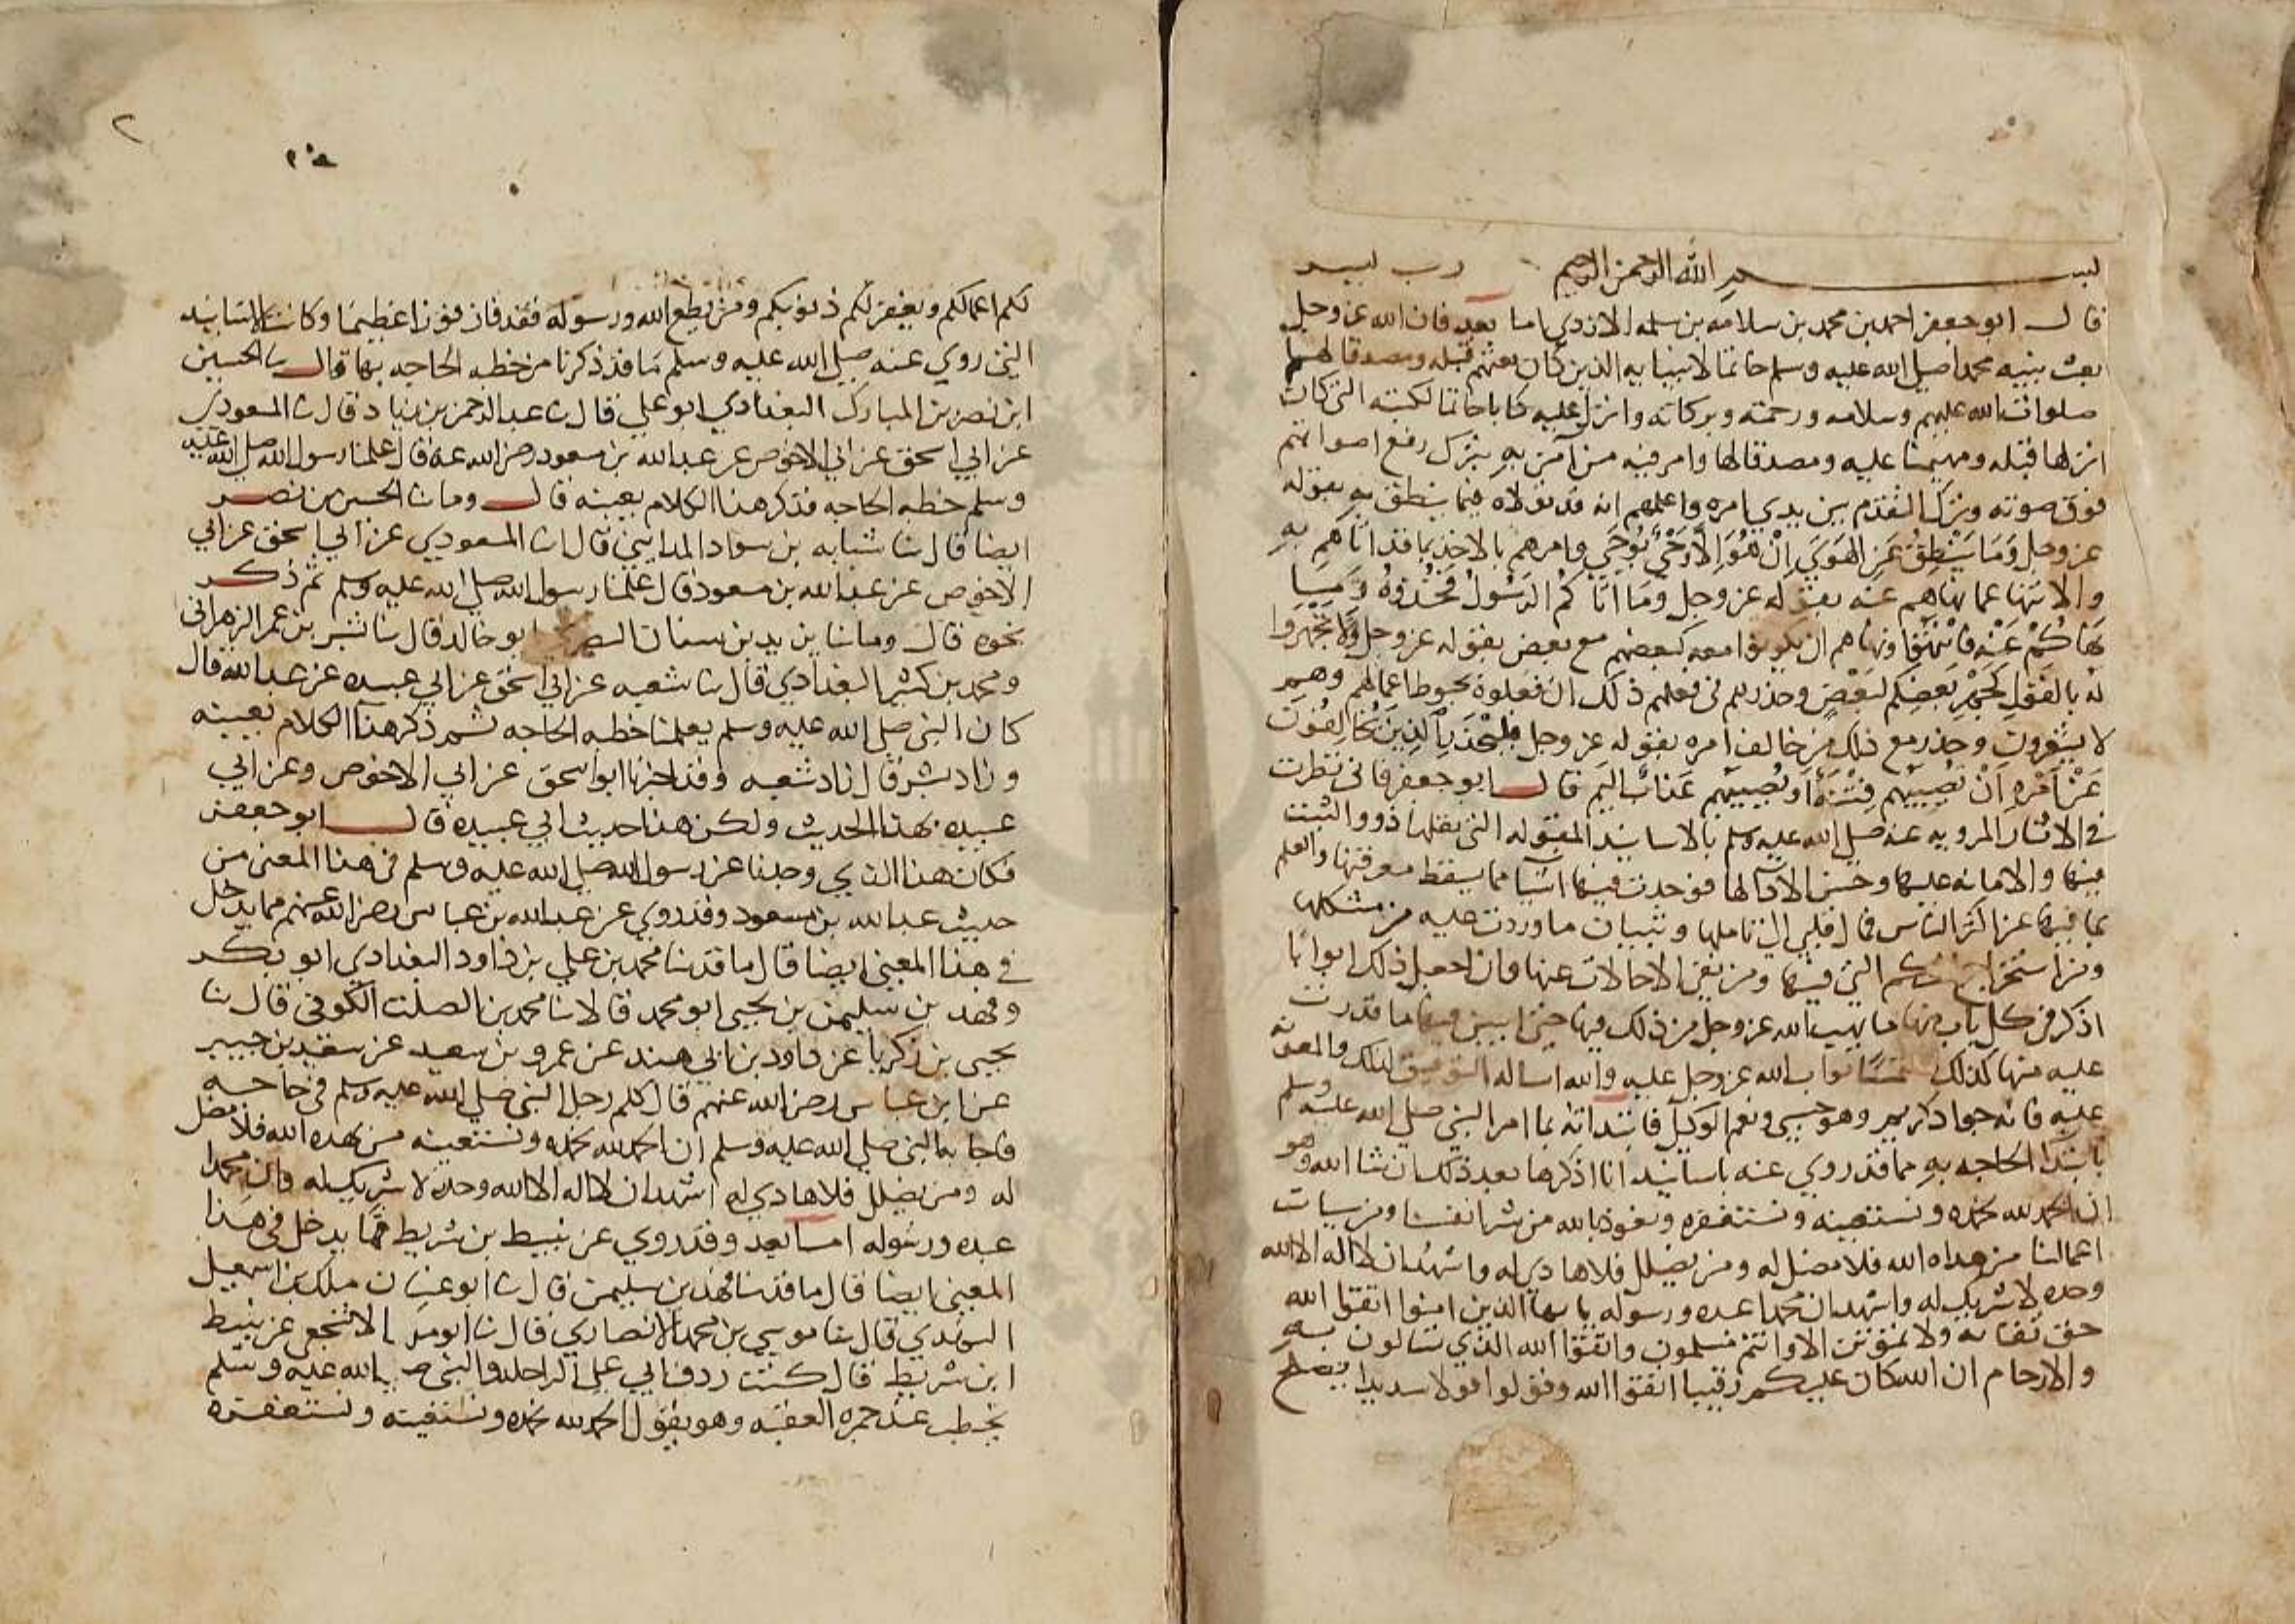 بسم الله الرحمن الرحيم رب يسر
قال ابو جعفر احمد بن محمد بن سلامه بن سلمه الازدي اما بعد فان الله عز وجل
بعث نبيه محمدا صلى الله عليه وسلم خاتما لانبيايه الذين كان بعثهم قبله ومصدقا لهم
صلوات الله عليهم وسلامه ورحمته وبركاته وانزل عليه كتابا خاتما لكتبه التي كان
انزلها قبله ومهيمنا عليه ومصدقا لها وامر فيه من آمن به بترك رفع اصواتهم
فوق صوته وترك التقدم بين يدي امره واعلمهم انه قد تولاه فيما ينطق به بقوله
عز وجل وَمَا يَنْطِقُ عَنِ الهَوَى اِنْ هُوَ اِلَّا وَحْيٌ يُوحَى وامرهم بالاخذ بما قد اتاهم به
والانتها عما نهاهم عنه بقوله عز وجل وَمَا اَتَاكُمْ الرَّسُولُ فَخُذُوهُ وَمَا
نَهَاكُمْ عَنْهُ فَانْتَهُوا ونهاهم ان يكونوا معه كبعضهم مع بعض بقوله عز وجل وَلَا تَجْهَرُوا
لَهُ بالقَوْلِ كَجَهْرِ بَعْضِكُم لبَعْضٍ وحذرهم في فعلهم ذلك ان فعلوه حبوط اعمالهم وهم
لا يشعرون وحذر مع ذلك من خالف امره بقوله عز وجل فَلْيَحْذَرِ الَّذِينَ يُخَالِفُونَ
عَنْ اَمْرِهِ اَنْ تُصِيبَهُم فِتْنَةٌ اَو يُصِيبَهُم عَذَابٌ اليم قال ابو جعفر فاني نظرت
في الاثار المرويه عنه صلى الله عليه وسلم بالاسانيد المقبوله التي نقلها ذوو التثبت
فيها والامانه عليها وحسن الادا لها فوجدت فيها اشيا مما يسقط معرفتها والعلم
بما فيها عن اكثر الناس فمال قلبي الى تاملها وتبيان ما قدرت عليه من مشكلها
ومن استخراج الاحكام التي فيها ومن نفي الاحالات عنها وان اجعل ذلك ابوابا
اذكر في كل باب منها ما يهب الله عز وجل من ذلك فيها حتى ابين فيها ما قدرت
عليه منها كذلك ملتمسا ثواب الله عز وجل عليه والله اساله التوفيق لذلك والمعونه
عليه فانه جواد كريم وهو حسبي ونعم الوكيل فابتداته بما امر النبي صلى الله عليه وسلم
بابتدا الحاجه به مما قد روي عنه باسانيد انا اذكرها بعد ذلك ان شا الله وهو
ان الحمد لله نحمده ونستعينه ونستغفره ونعوذ بالله من شر انفسنا ومن سيات
اعمالنا من هداه الله فلا مضل له ومن يضلل فلا هادي له واشهد ان لا اله الا الله
وحده لا شريك له واشهد ان محمدا عبده ورسوله يا ايها الذين امنوا اتقوا الله
حق تقاته ولا تموتن الا وانتم مسلمون واتقوا الله الذي تسالون به
والارحام ان الله كان عليكم رقيبا اتقوا الله وقولوا قولا سديدا يصلح
٢
لكم اعمالكم ويغفر لكم ذنوبكم ومن يطع الله ورسوله فقد فاز فوزا عظيما وكانت الاسانيد
التي روي عنه صلى الله عليه وسلم ما قد ذكرنا من خطبه الحاجه بها قال ثنا الحسين
ابن نصر بن المبارك البغدادي ابو علي قال ثنا عبد الرحمن بن زياد قال ثنا المسعودي
عن ابي اسحق عن ابي الاحوص عن عبد الله بن مسعود رضي الله عنه قال علمنا رسول الله صلى الله عليه
وسلم خطبه الحاجه فذكر هذا الكلام بعينه قال وما ثنا الحسين بن نصر
ايضا قال ثنا شبابه بن سوار المدايني قال ثنا المسعودي عن ابي اسحق عن ابي
الاحوص عن عبد الله بن مسعود قال علمنا رسول الله صلى الله عليه وسلم ثم ذكر
نحوه قال وما ثنا يزيد بن سنان ابو خالد قال ثنا بشر بن عمر الزهراني
ومحمد بن كثير البغدادي قال ثنا شعبه عن ابي اسحق عن ابي عبيده عن عبد الله قال
كان النبي صلى الله عليه وسلم يعلمنا خطبه الحاجه ثم ذكر هذا الكلام بعينه
وزاد بشر قال زاد شعبه وقد اخبرنا ابو اسحق عن ابي الاحوص وعن ابي
عبيده بهذا الحديث ولكن هذا حديث ابي عبيده قال ابو جعفر
فكان هذا الذي وجدنا عن رسول الله صلى الله عليه وسلم في هذا المعنى من
حديث عبد الله بن مسعود وقد روي عن عبد الله بن عباس رضي الله عنهم مما يدخل
في هذا المعنى ايضا قال ما قد ثنا محمد بن علي بن داود البغدادي ابو بكر
وفهد بن سليمن بن يحيى ابو محمد قالا ثنا محمد بن الصلت الكوفي قال ثنا
يحيى بن زكريا عن داود بن ابي هند عن عمرو بن سعيد عن سعيد بن جبير
عن ابن عباس رضي الله عنهم قال كلم رجل النبي صلى الله عليه وسلم في حاجه
فاجابه النبي صلى الله عليه وسلم ان الحمد لله نحمده ونستعينه من يهده الله فلا مضل
له ومن يضلل فلا هادي له اشهد ان لا اله الا الله وحده لا شريك له وان محمدا
عبده ورسوله اما بعد وقد روي عن نبيط بن شريط مما يدخل في هذا
المعنى ايضا قال ما قد ثنا فهد بن سليمن قال ثنا ابو غسان ملك بن اسمعيل
النهدي قال ثنا موسى بن محمد الانصاري قال ثنا ابو ملك الاشجعي عن نبيط
ابن شريط قال كنت ردف ابي على الراحله والنبي صلى الله عليه وسلم
يخطب عند جمره العقبه وهو يقول الحمد لله نحمده ونستعينه ونستغفره